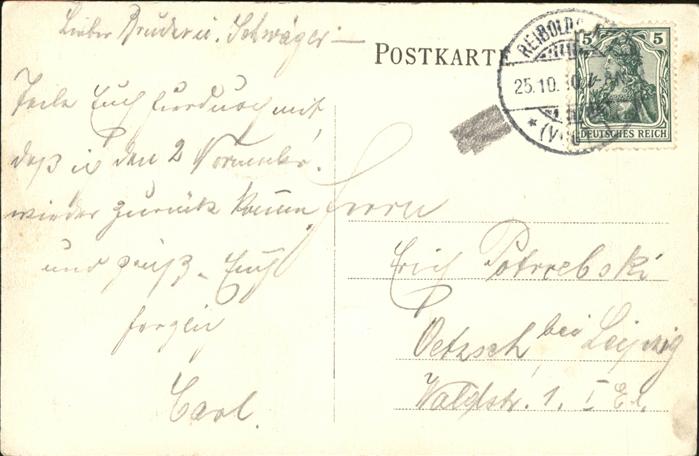 Lieber Bruder u. Schwager
Teile Euch hierdurch mit
daß ich den 2 November
wieder zurück komme
und grüß Euch
Carl.
POSTKARTE
REIBOLDS
25.10.10.
* (V
5 5
DEUTSCHES REICH
Herrn
Erich Potrrebski
Oetzsch bei Leipzig
Waldstr. 1. I Et.